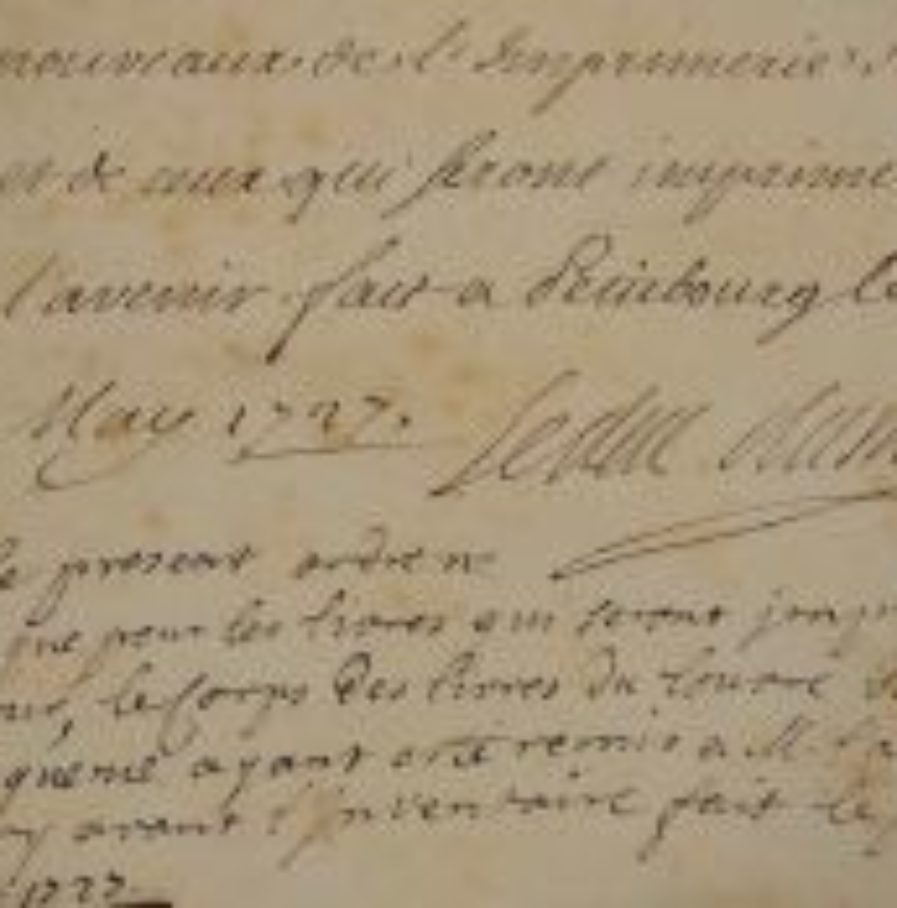 nouveaux de l'Imprimerie
et de ceux qui seront imprime
l'avenir. fait a le
May 1727. Le duc
le present ordre ne
que pour les livres qui seront imp
le Corps des livres du Louvre
ayant esté remis a M.
avant l'inventaire fait le
1727